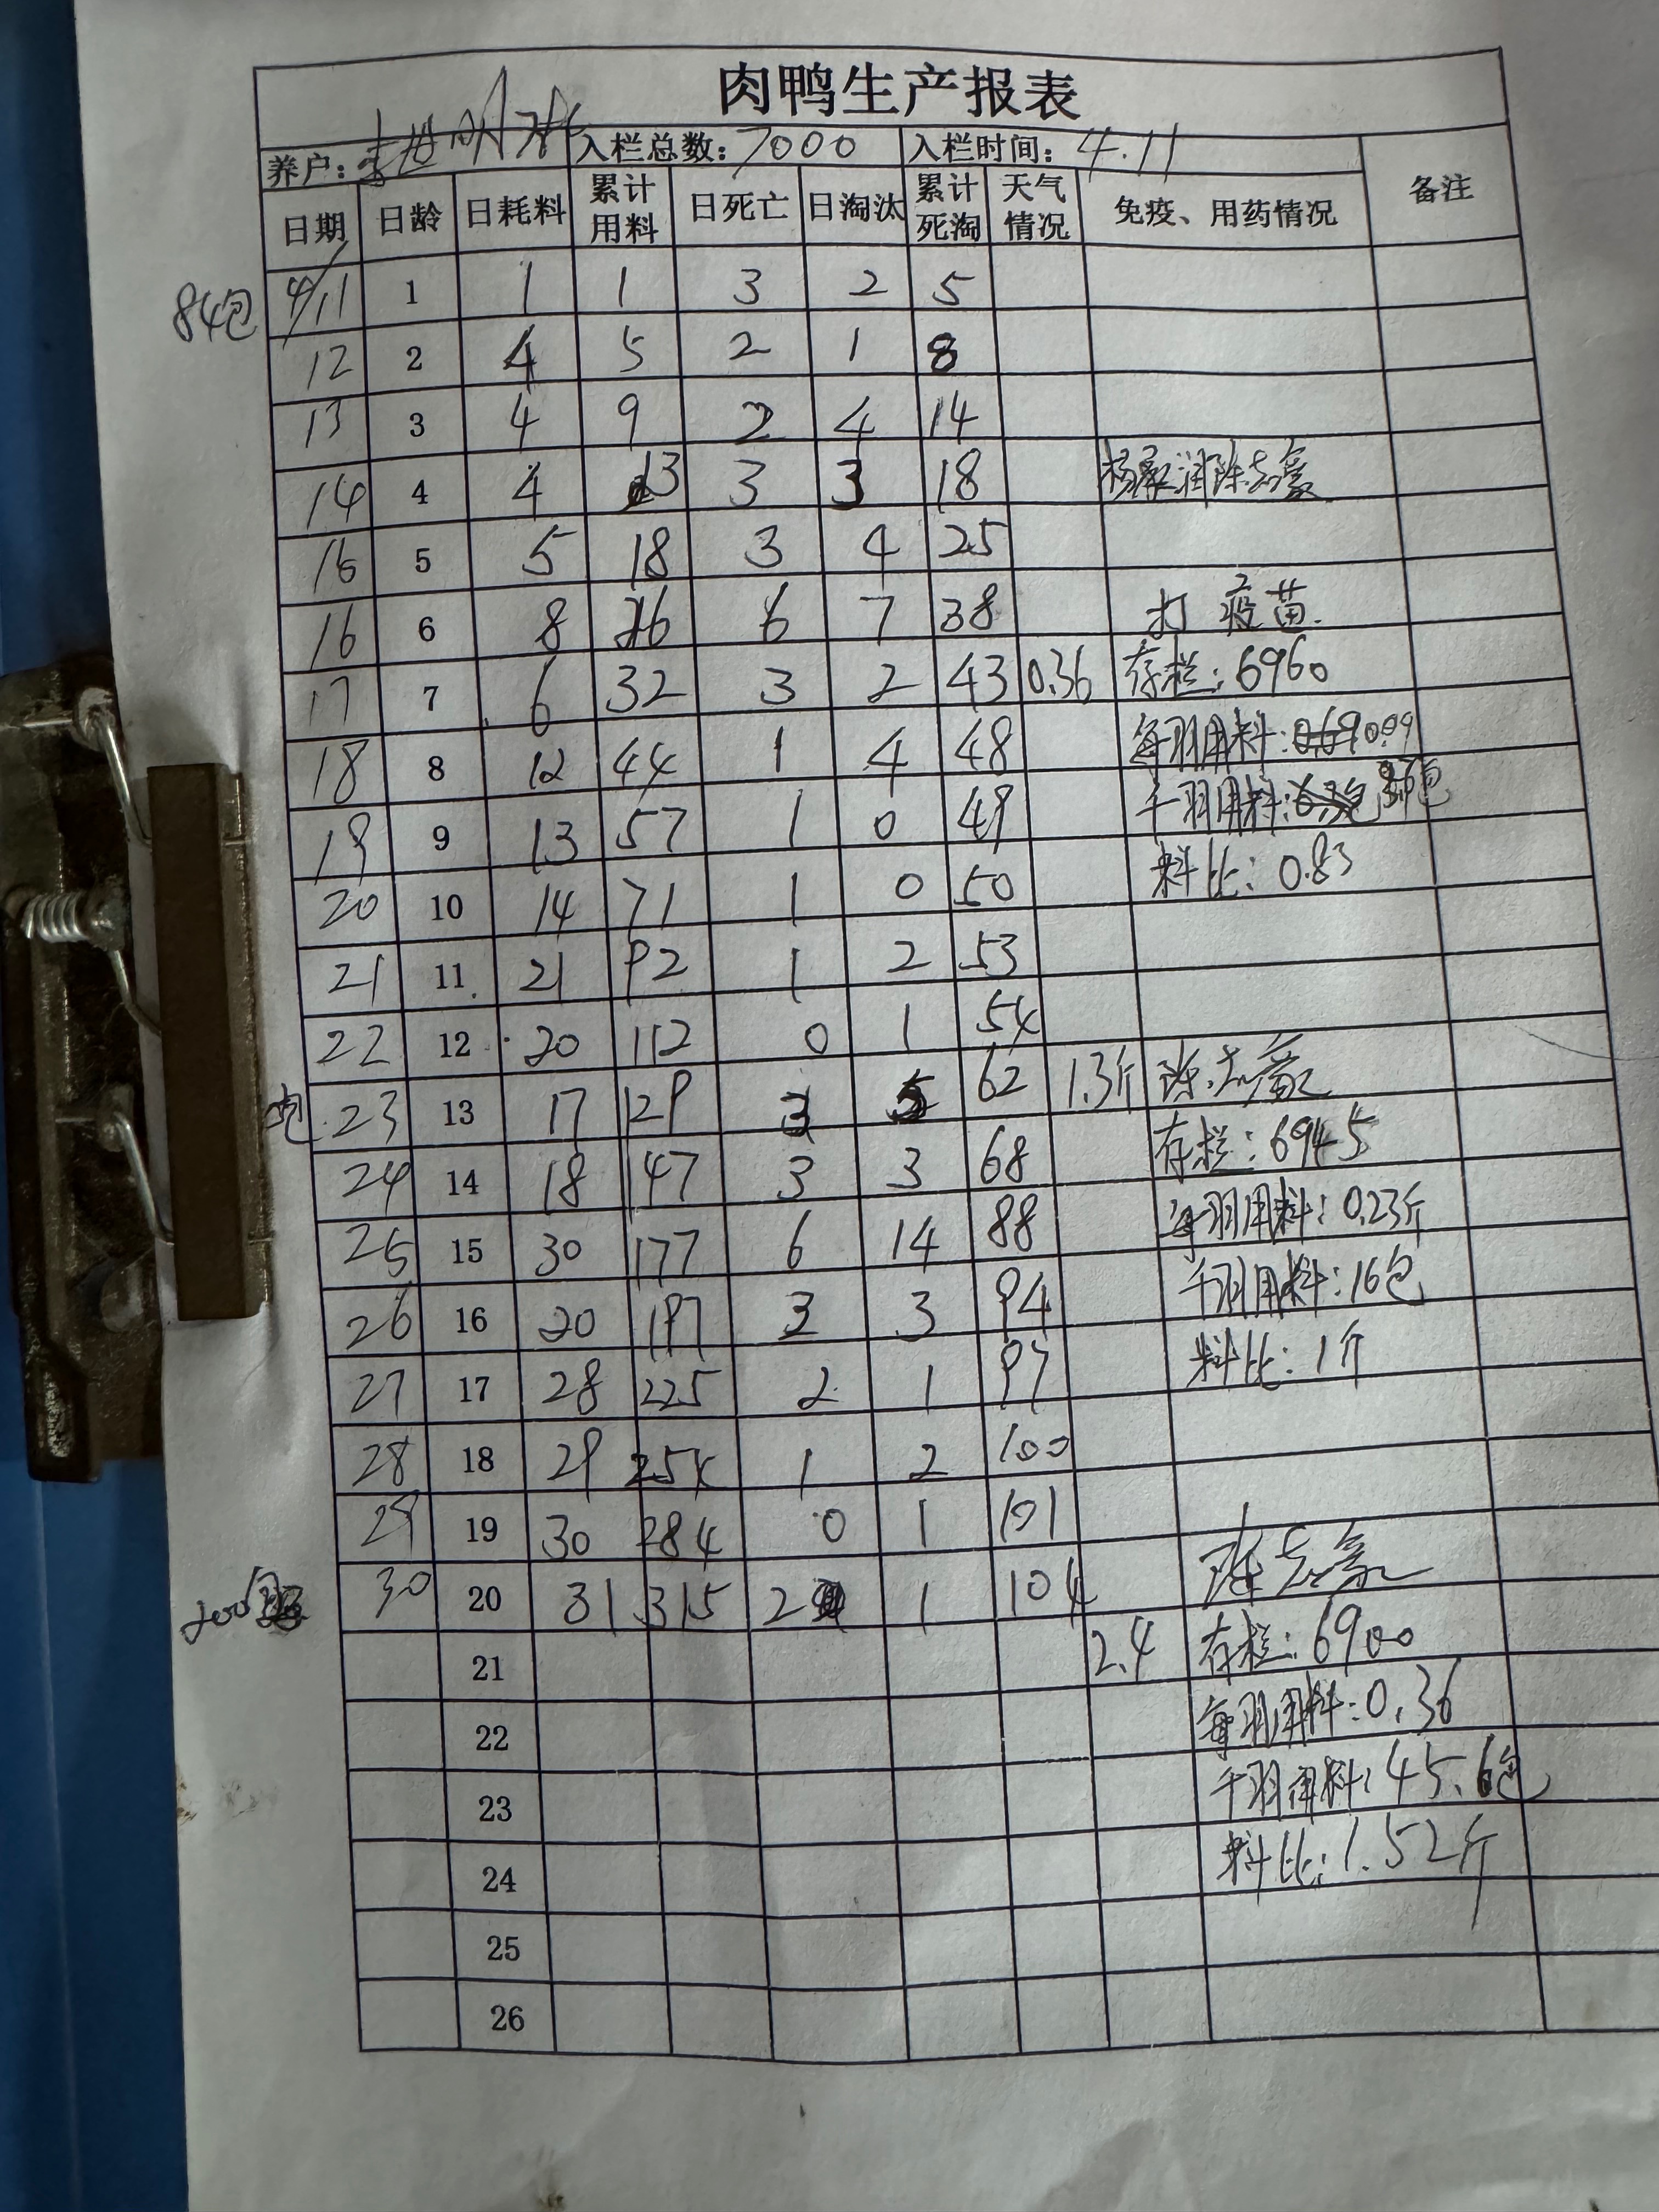 肉鸭生产报表
养户: 李世明 入栏总数: 7000 入栏时间: 4.11
日期 日龄 日耗料 累计用料 日死亡 日淘汰 累计死淘 天气情况 免疫、用药情况 备注
84包 4/11 1 1 1 3 2 5
12 2 4 5 2 1 8
13 3 4 9 2 4 14
14 4 4 13 3 3 18
15 5 5 18 3 4 25
16 6 8 26 6 7 38 打疫苗.
17 7 6 32 3 2 43 0.36 存栏: 6960
18 8 12 44 1 4 48 每羽用料: 0.09
19 9 13 57 1 0 49 千羽用料: 包
20 10 14 71 1 0 50 料比: 0.83
21 11 21 92 1 2 53
22 12 20 112 0 1 54
23 13 17 129 3 5 62 1.3斤 陈志豪
24 14 18 147 3 3 68 存栏: 6945
25 15 30 177 6 14 88 每羽用料: 0.23斤
26 16 20 197 3 3 94 千羽用料: 16包
27 17 28 225 2 1 97 料比: 1斤
28 18 29 254 1 2 100
29 19 30 284 0 1 101
200包 30 20 31 315 2 1 104 陈志豪
21 2.4 存栏: 6900
22 每羽用料: 0.36
23 千羽用料: 45.6包
24 料比: 1.52斤
25
26